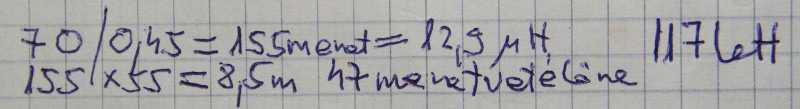 70/0,45 = 155 menet = 12,9 µH 117 lett
155 x 55 = 8,5m 47